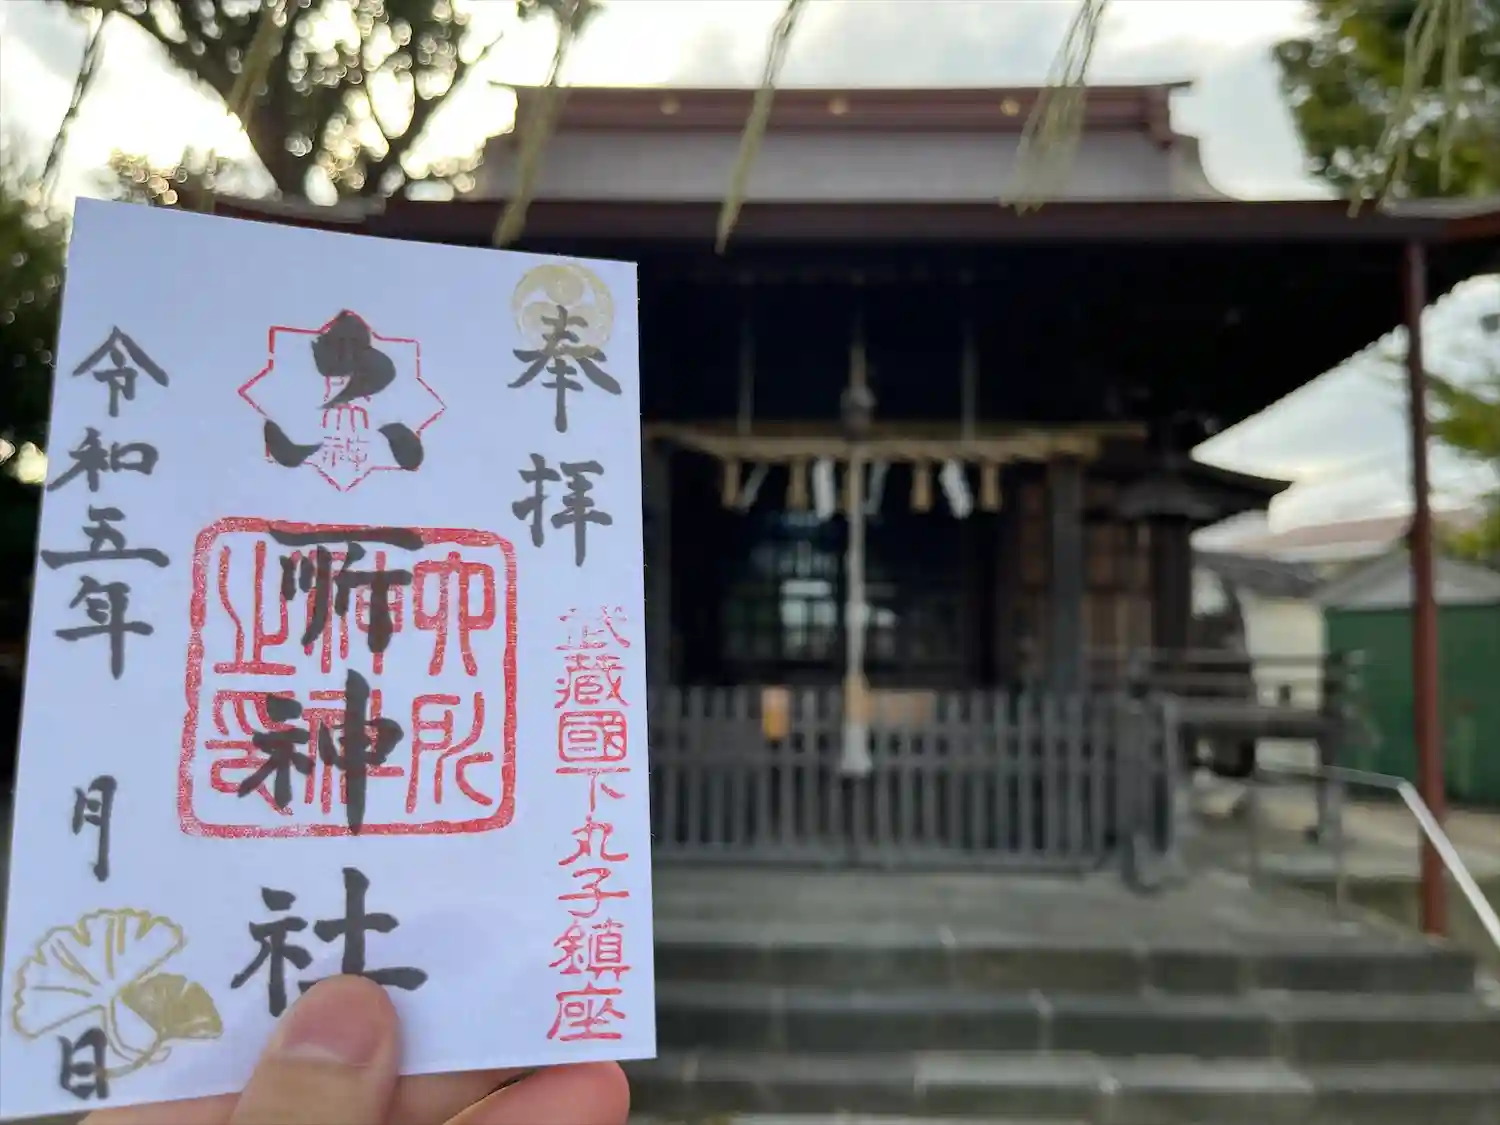 奉拝
武蔵國下丸子鎮座
六所神社
六所神社神印
令和五年
月
日